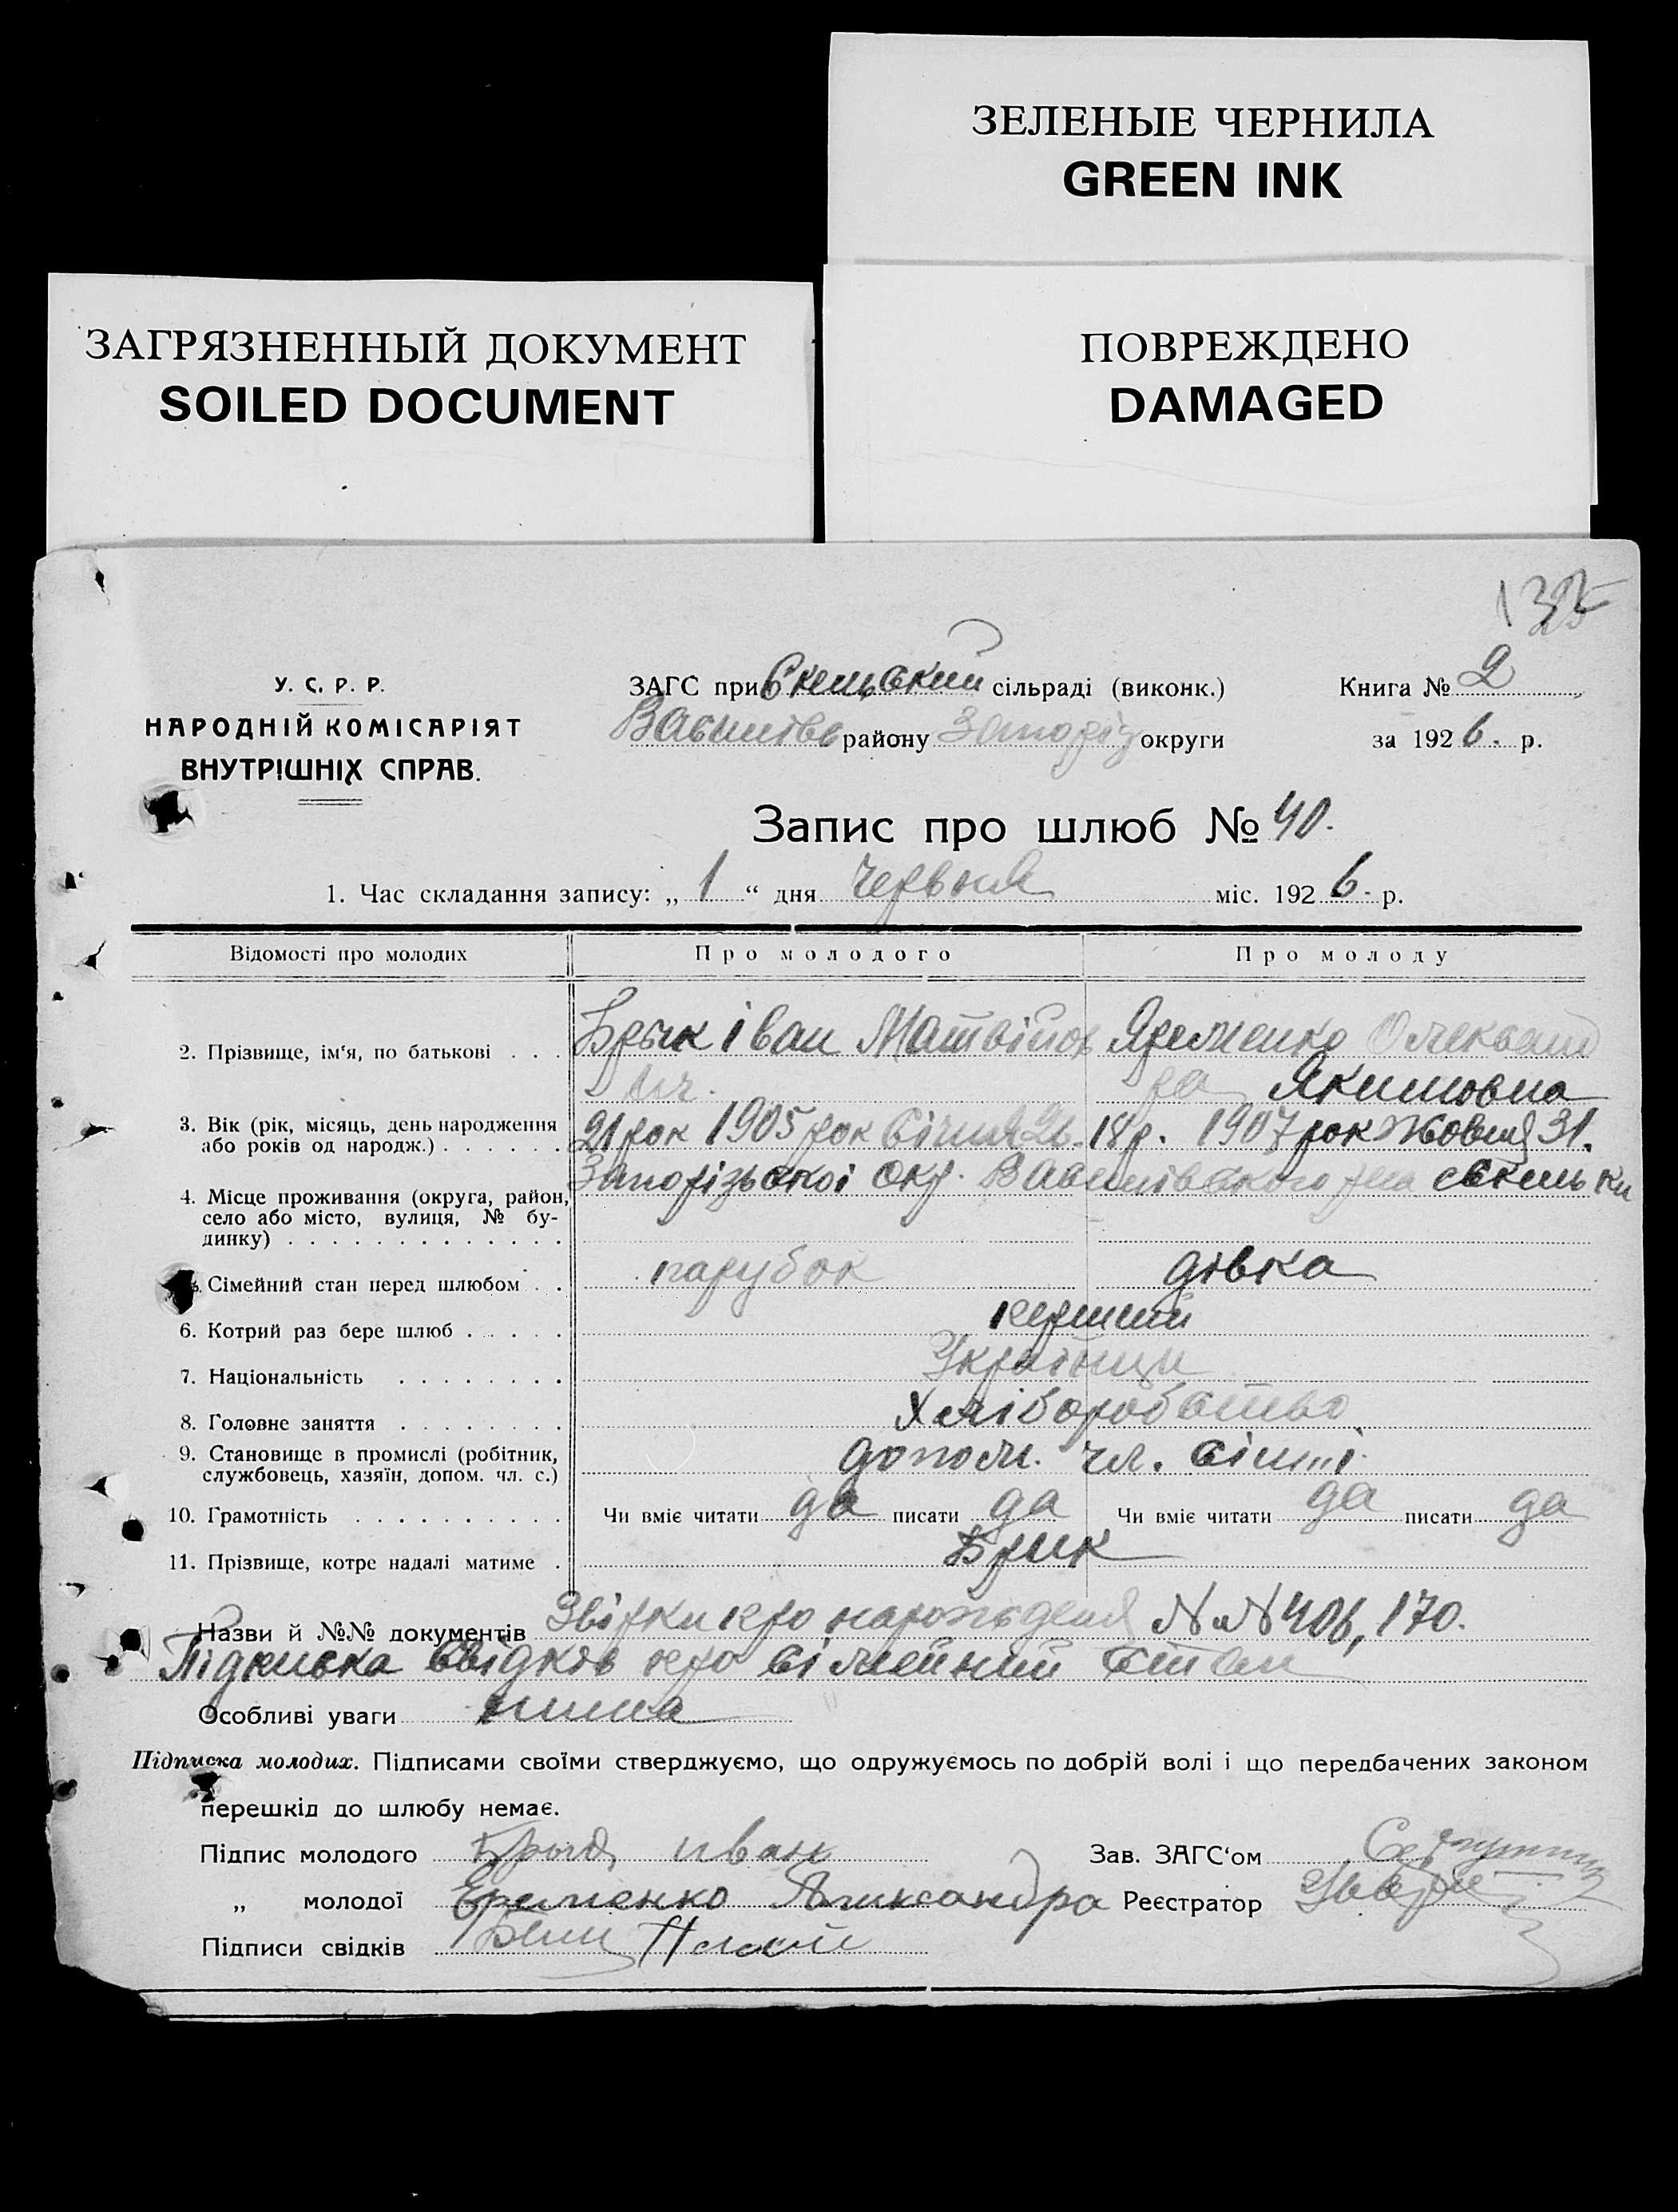 ЗЕЛЕНЫЕ ЧЕРНИЛА
GREEN INK
ЗАГРЯЗНЕННЫЙ ДОКУМЕНТ
SOILED DOCUMENT
ПОВРЕЖДЕНО
DAMAGED
У. С. Р. Р.
НАРОДНІЙ КОМІСАРІЯТ
ВНУТРІШНІХ СПРАВ.
ЗАГС при Скельський сільраді (виконк.)
Василівс району Запоріз округи
Книга № 2
за 1926. р.
Запис про шлюб № 40.
1. Час складання запису: „ 1 “ дня червня міс. 1926. р.
Відомості про молодих Про молодого Про молоду
2. Прізвище, ім‘я, по батькові . . . Брык Іван Матвійов Яременко Олександ
ич. ра Якимовна
3. Вік (рік, місяць, день народження
або років од народж.) . . . . . . 21 рок 1905 рок Січня 26. 18 р. 1907 рок Жовтня 31.
Запорізської окр. Василівського рна с Скельки
4. Місце проживання (округа, район,
село або місто, вулиця, № бу-
динку) . . . . . . . . . . . . .
Сімейний стан перед шлюбом . . парубок дівка
6. Котрий раз бере шлюб . . . . . перший
7. Національність . . . . . . . . Українци
8. Головне заняття . . . . . . . . Хліборобство
9. Становище в промислі (робітник,
службовець, хазяїн, допом. чл. с.) допом. чл. сімі
10. Грамотність . . . . . . . . . . Чи вміє читати да писати да Чи вміє читати да писати да
11. Прізвище, котре надалі матиме . Брик
Назви й №№ документів Звірки про нарождения №№ 406, 170.
Підписка свідків про сімейний стан
Особливі уваги
Підписка молодих. Підписами своїми стверджуємо, що одружуємось по добрій волі і що передбачених законом
перешкід до шлюбу немає.
Підпис молодого иван
Зав. ЗАГС‘ом
„ молодої Еременко Александра
Реєстратор
Підписи свідків